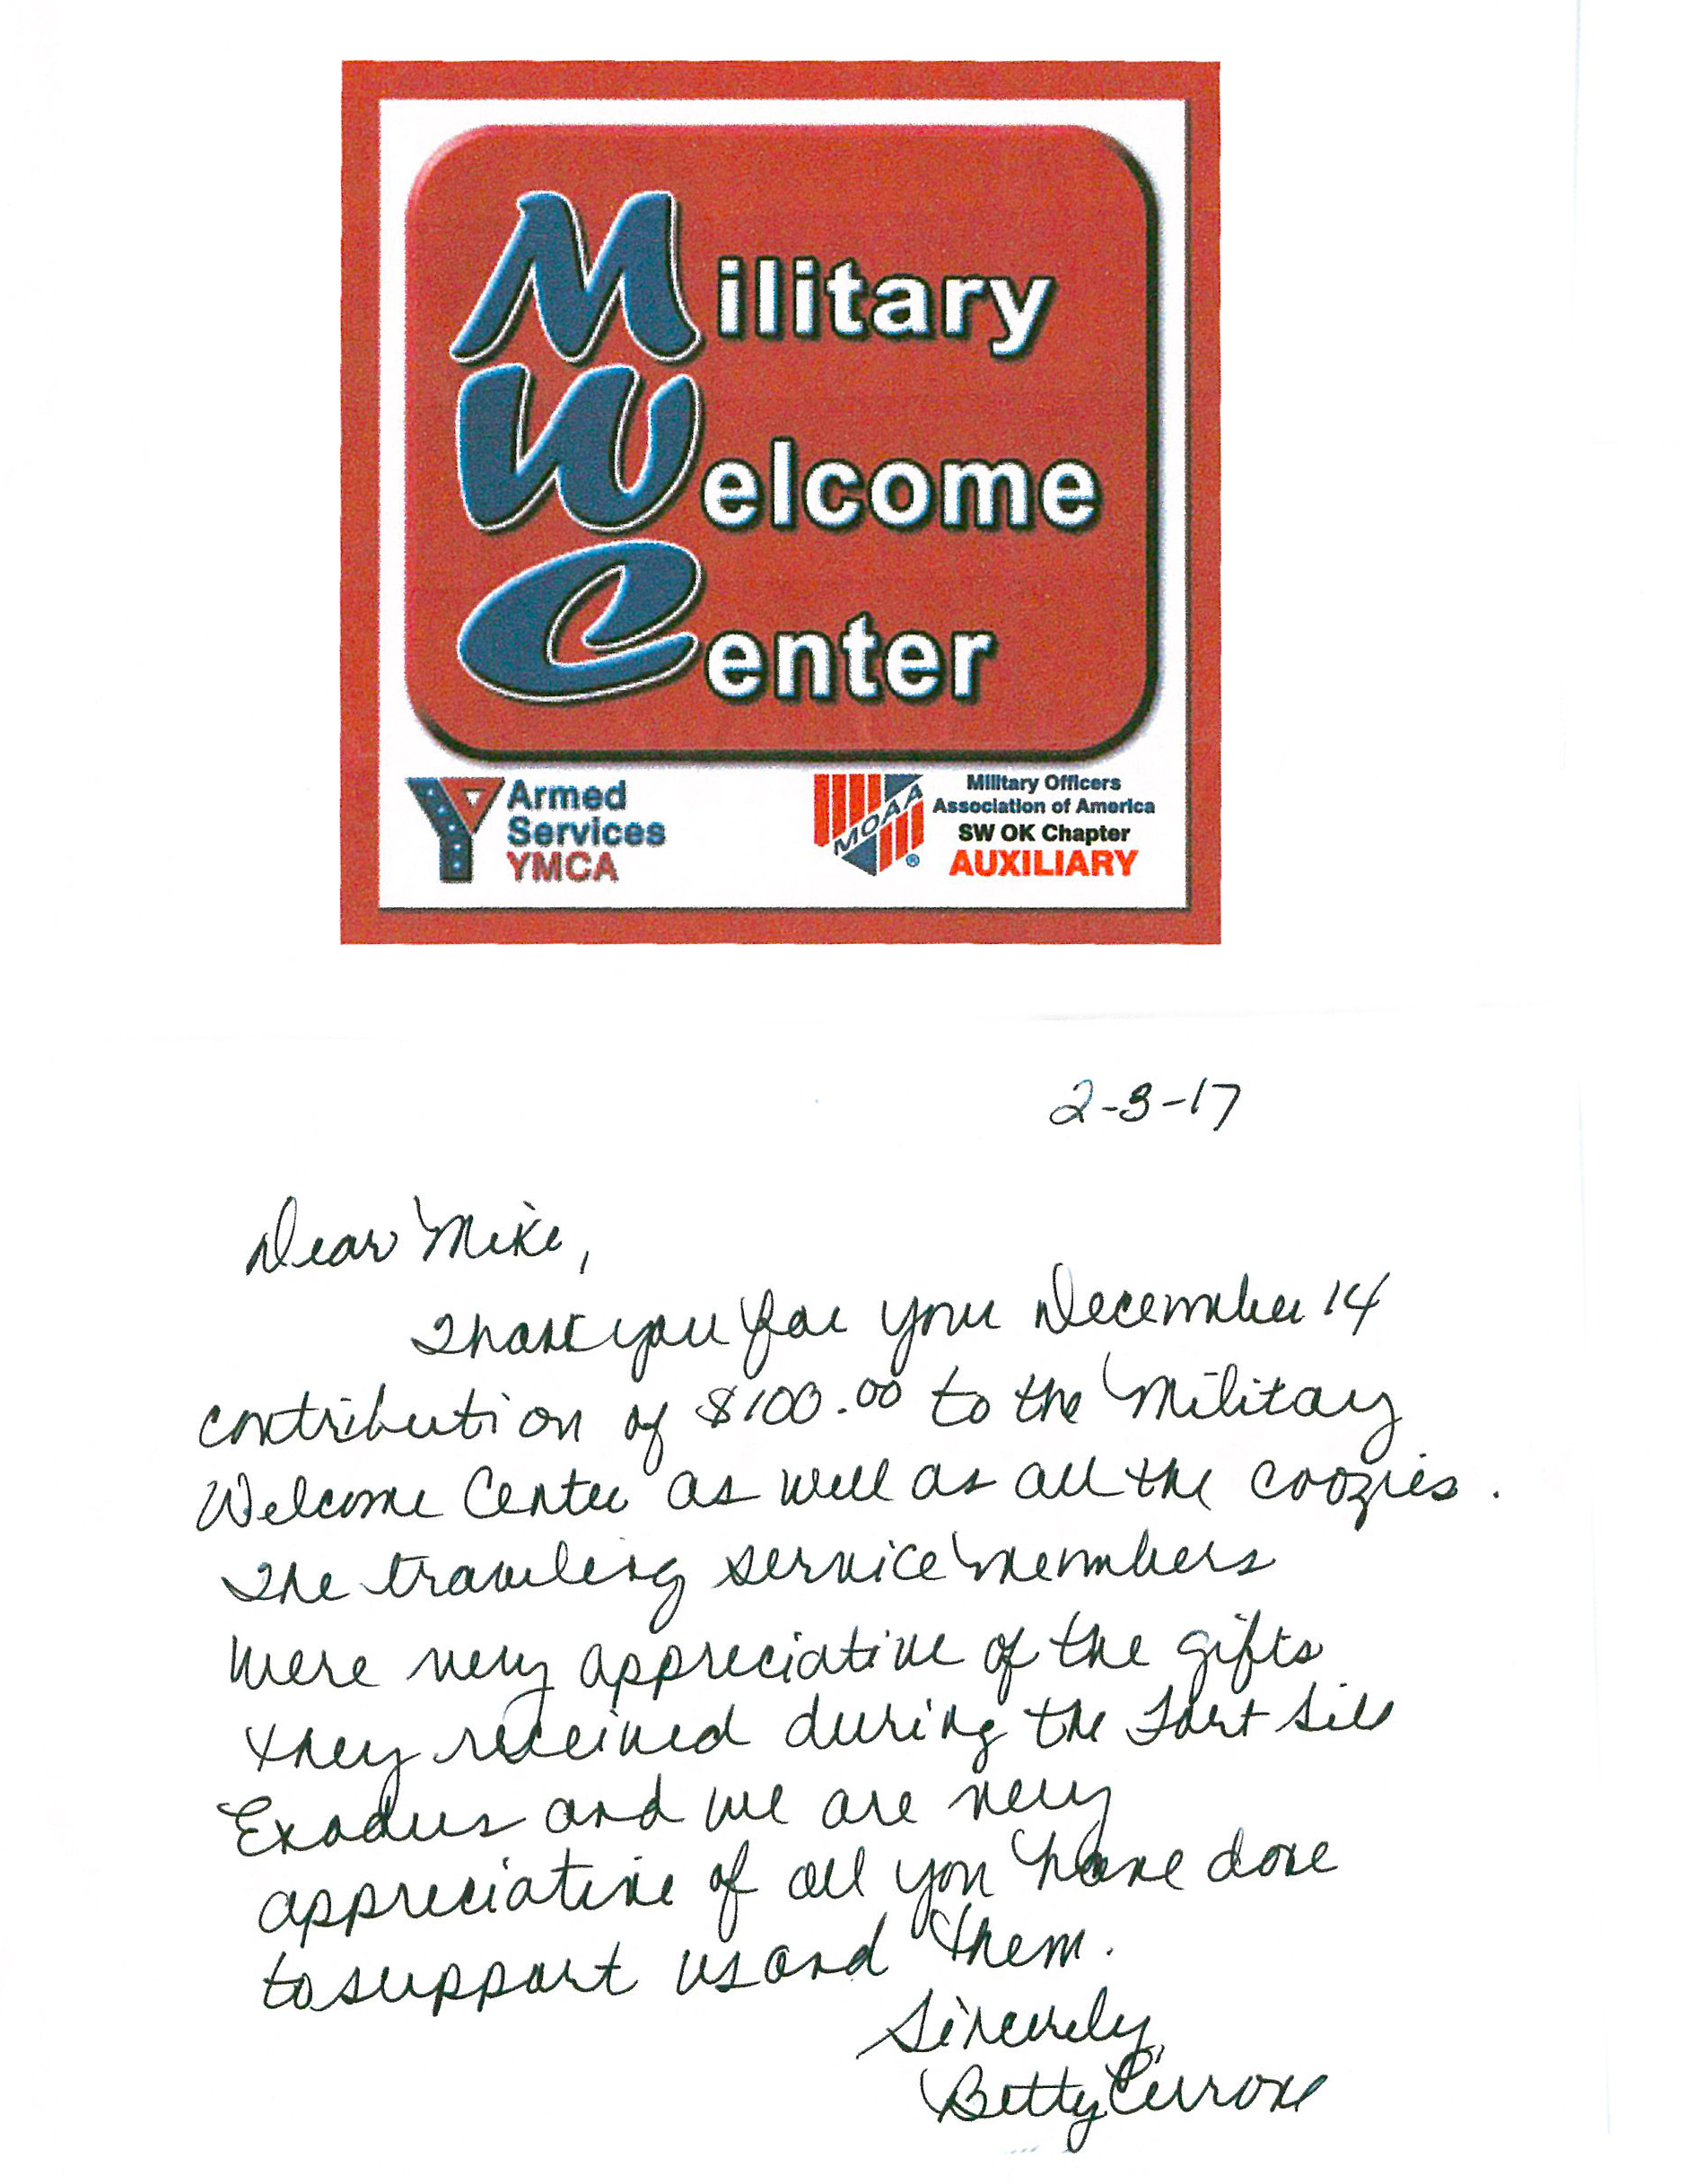 Military
Welcome
Center
Armed
Services
YMCA
MOAA
®
Military Officers
Association of America
SW OK Chapter
AUXILIARY
2-3-17
Dear Mike,
Thank you for your December 14
contribution of $100.00 to the Military
Welcome Center as well as all the coozies.
The traveling service members
were very appreciative of the gifts
they received during the Fort Sill
Exodus and we are very
appreciative of all you have done
to support us and them.
Sincerely,
Betty